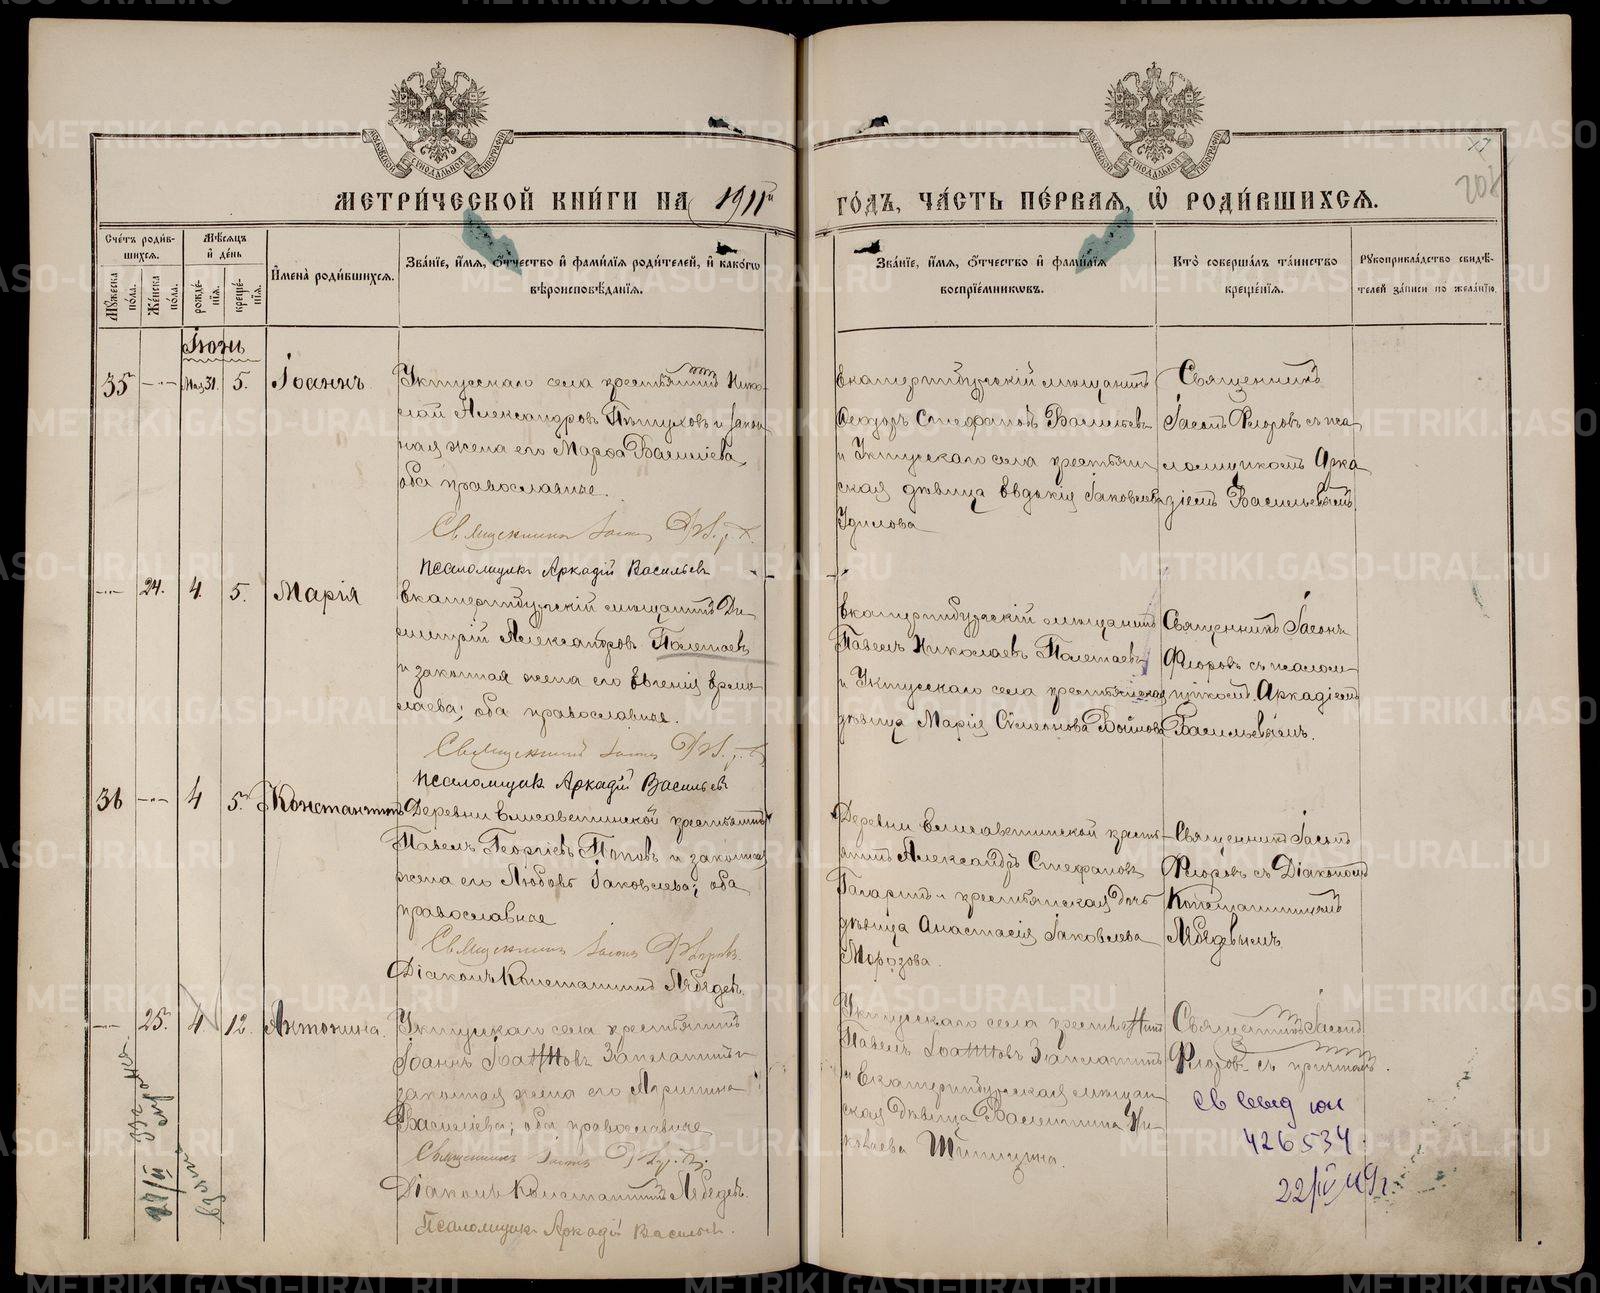 МЕТРИ́ЧЕСКОЙ КНИ́ГИ НА 1911й ГО́ДЪ, ЧА́СТЬ ПЕ́РВАЯ, Ѡ РОДИ́ВШИХСЯ.
Сче́тъ роди́вшихся.
Му́жеска по́ла.
Же́нска по́ла.
Мѣ́сяцъ и де́нь
рожде́нія.
креще́нія.
Имена̀ роди́вшихся.
Зва́ніе, и́мя, о́тчество и фами́лія роди́телей, и како́гѡ
вѣроисповѣ́данія.
Зва́ніе, и́мя, о́тчество и фами́лія
воспріе́мниковъ.
Кто̀ соверша́лъ та́инство
креще́нія.
Рукоприкла́дство свидѣ́-
телей за́писи по жела́нію.
Іюнь
35 Мая 31. 5. Іоаннъ
Уктусскаго села крестьянинъ Нико-
лай Александровъ Пѣтуховъ и закон-
ная жена его Марѳа Василіева,
оба православные.
Священникъ Іасонъ
Псаломщикъ Аркадій Васильевъ
Екатеринбургскій мѣщанинъ
Ѳеодоръ Стефановъ Васильевъ
и Уктусскаго села крестьян-
ская дѣвица Евдокія Іаковлева
Удилова
Священникъ
Іасонъ Флоровъ съ пса-
ломщикомъ Арка-
діемъ Васильевымъ.
24. 4. 5. Марія
Екатеринбургскій мѣщанинъ Ди-
митрій Александровъ Полетаевъ
и законная жена его Евгенія Ермо-
лаева; оба православные.
Священникъ Іасонъ
Псаломщикъ Аркадій Васильевъ
Екатеринбургскій мѣщанинъ
Павелъ Николаевъ Полетаевъ
и Уктусскаго села крестьянская
дѣвица Марія Сѵмеонова
Священникъ Іасонъ
Флоровъ съ псалом-
щикомъ Аркадіемъ
Васильевымъ.
36 4 5. Константинъ
Деревни Елисаветинской крестьянинъ
Павелъ Георгіевъ Поповъ и законная
жена его Любовь Іаковлева; оба
православные
Священникъ Іасонъ Флоровъ.
Діаконъ Константинъ Лебедевъ.
Деревни Елисаветинской кресть-
янинъ Александръ Стефановъ
и крестьянская дочь
дѣвица Анастасія Іаковлева
Морозова.
Священникъ Іасонъ
Флоровъ съ Діакономъ
Константиномъ
Лебедевымъ.
25. 4 12. Антонина.
Уктусскаго села крестьянинъ
Іоаннъ Іоанновъ Заплатинъ и
законная жена его
Василіева; оба православные
Священникъ Іасонъ
Діаконъ Константинъ Лебедевъ.
Псаломщикъ Аркадій Васильевъ.
Уктусскаго села крестьянинъ
Павелъ Іоанновъ Заплатинъ
и Екатеринбургская мѣщан-
ская дѣвица Валентина Ни-
колаева Шипицина.
Священникъ Іасонъ
Флоровъ съ причтомъ.
426534.
22/IV 49 г